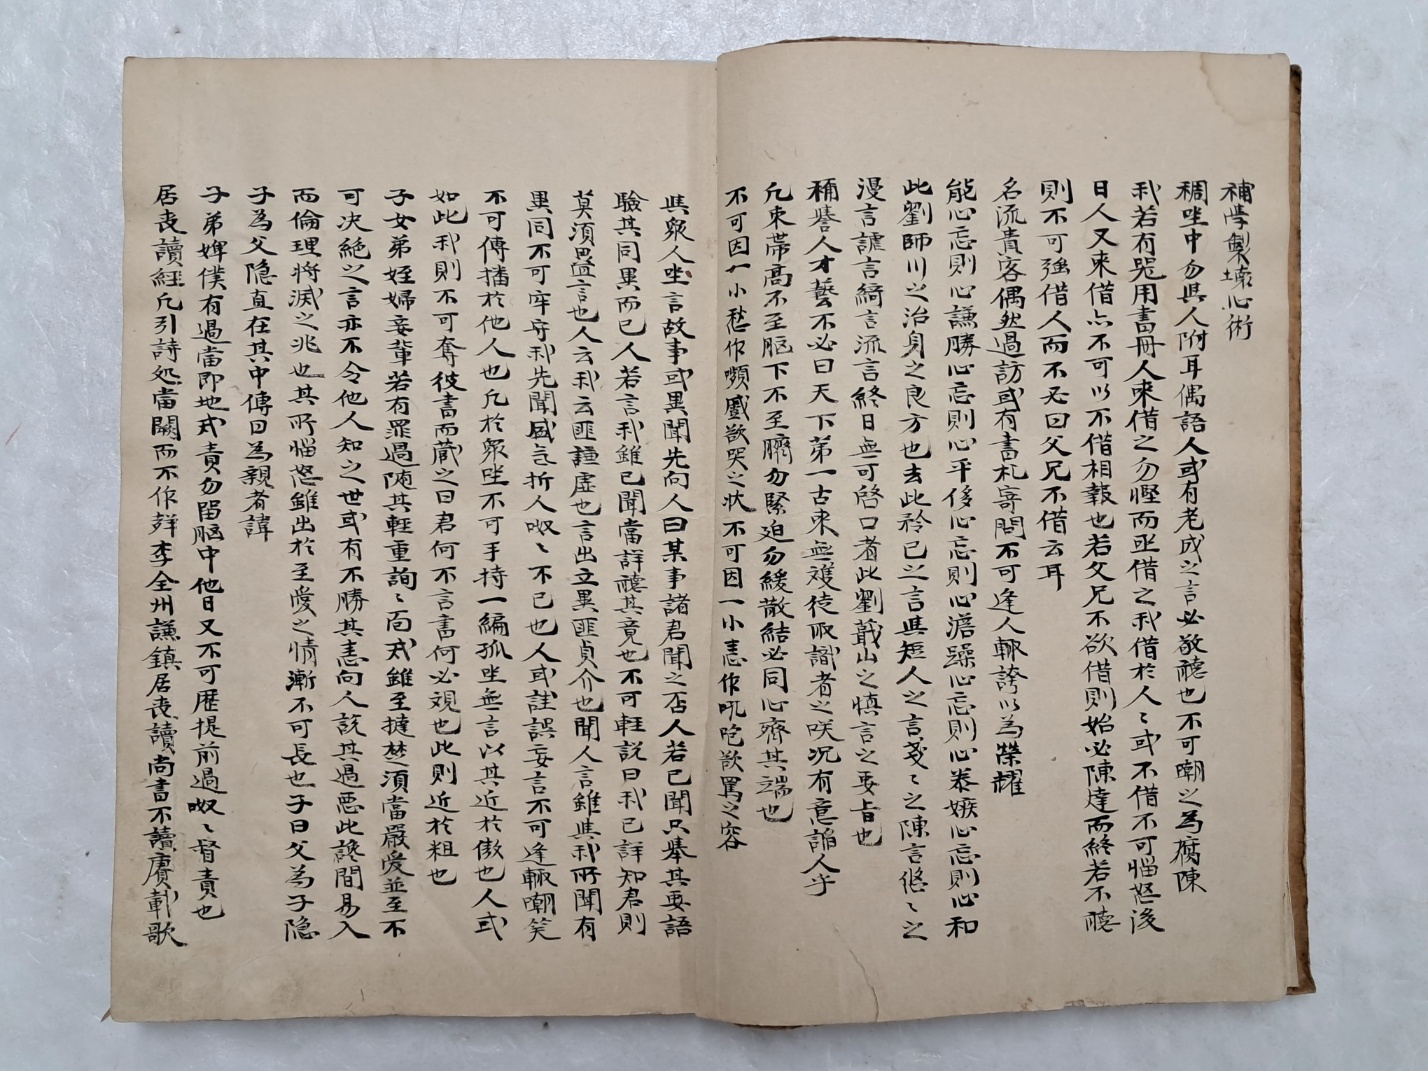 補學製壞心術
稠坐中勿與人附耳偶語人或有老成之言必敬聽也不可嘲之為腐陳
我若有器用書冊人來借之勿慳而亟借之我借於人〻或不借不可惱怒後
日人又來借亦不可以不借相報也若父兄不欲借則始必陳達而終若不聽
則不可強借人而不必曰父兄不借云耳
名流貴客偶然過訪或有書札寄問不可逢人輒誇以為榮耀
能心忘則心謙勝心忘則心平侈心忘則心澹躁心忘則心泰嫉心忘則心和
此劉師川之治身之良方也去此矜己之言與短人之言戔〻之陳言悠〻之
漫言謔言綺言流言終日無可啓口者此劉蕺山之慎言之要旨也
稱譽人才藝不必曰天下第一古來無雙徒取識者之咲况有意諂人乎
凡束帶高不至胸下不至臍勿緊迫勿緩散結必同心齊其端也
不可因一小愁作嚬蹙欲哭之状不可因一小恚作吼咆欲罵之容
與衆人坐言故事或異聞先向人曰某事諸君聞之否人若已聞只舉其要語
驗其同異而已人若言我雖已聞當詳聽其竟也不可輕説曰我已詳知君則
莫須畳言也人云我云匪謹虛也言出立異匪貞介也聞人言雖與我所聞有
異同不可牢守我先聞盛氣折人呶〻不已也人或註誤妄言不可逢輒嘲笑
不可傳播於他人也凡於衆坐不可手持一編孤坐無言以其近於傲也人或
如此我則不可奪彼書而藏之曰君何不言書何必覌也此則近於粗也
子女弟姪婦妾輩若有罪過随其輕重詢〻面戒雖至撻楚須當嚴愛並至不
可决絶之言亦不令他人知之世或有不勝其恚向人説其過惡此讒間易入
而倫理將滅之兆也其所惱怒雖出於至愛之情漸不可長也子曰父為子隐
子為父隐直在其中傳曰為親者諱
子弟婢僕有過當即地戒責勿留胸中他日又不可歴提前過呶〻督責也
居喪讀經凡引詩処當闕而不作辝李全州謙鎮居喪讀尚書不讀賡載歌